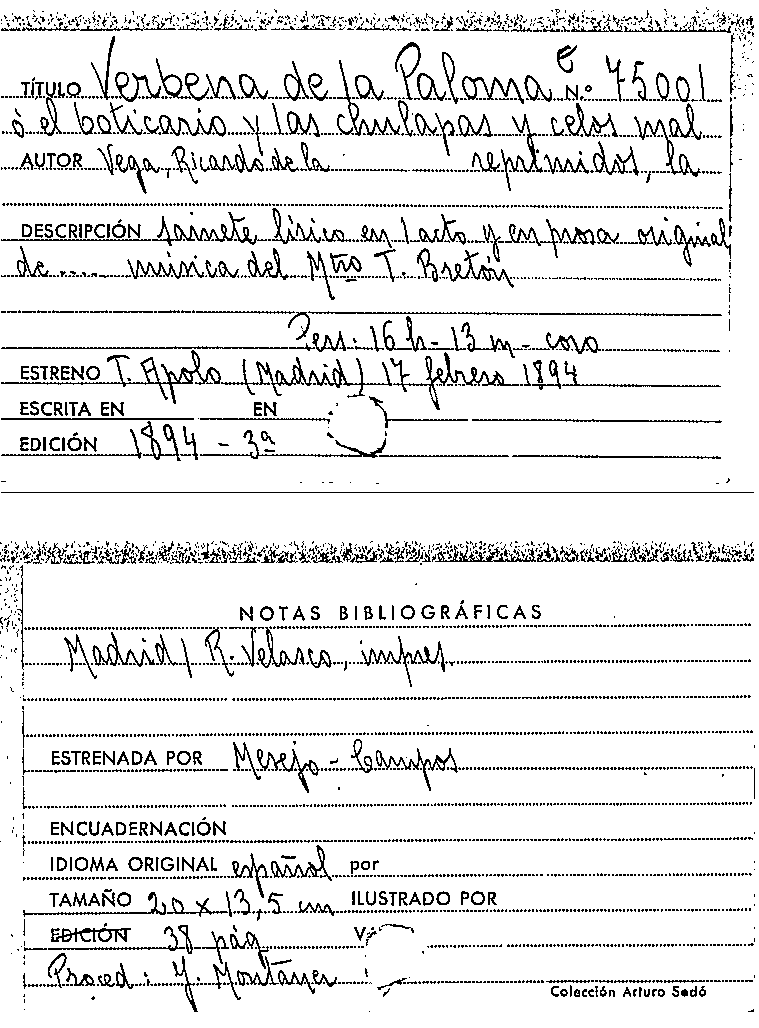 TÍTULO Verbena de la Paloma N.º 75001
ó el boticario y las chulapas y celos mal
AUTOR Vega, Ricardo de la reprimidos, la
DESCRIPCIÓN sainete lírico en 1 acto y en prosa original
de ..... música del Mtro T. Bretón
Pers: 16 h - 13 m - coro
ESTRENO T. Apolo (Madrid) 17 febrero 1894
ESCRITA EN EN
EDICIÓN 1894 - 3ª
NOTAS BIBLIOGRÁFICAS
Madrid / R. Velasco, impres.
ESTRENADA POR Mesejo - Campos
ENCUADERNACIÓN
IDIOMA ORIGINAL español por
TAMAÑO 20 x 13,5 cm ILUSTRADO POR
EDICIÓN 38 pág
Proced: Montaner
Colección Arturo Sedó